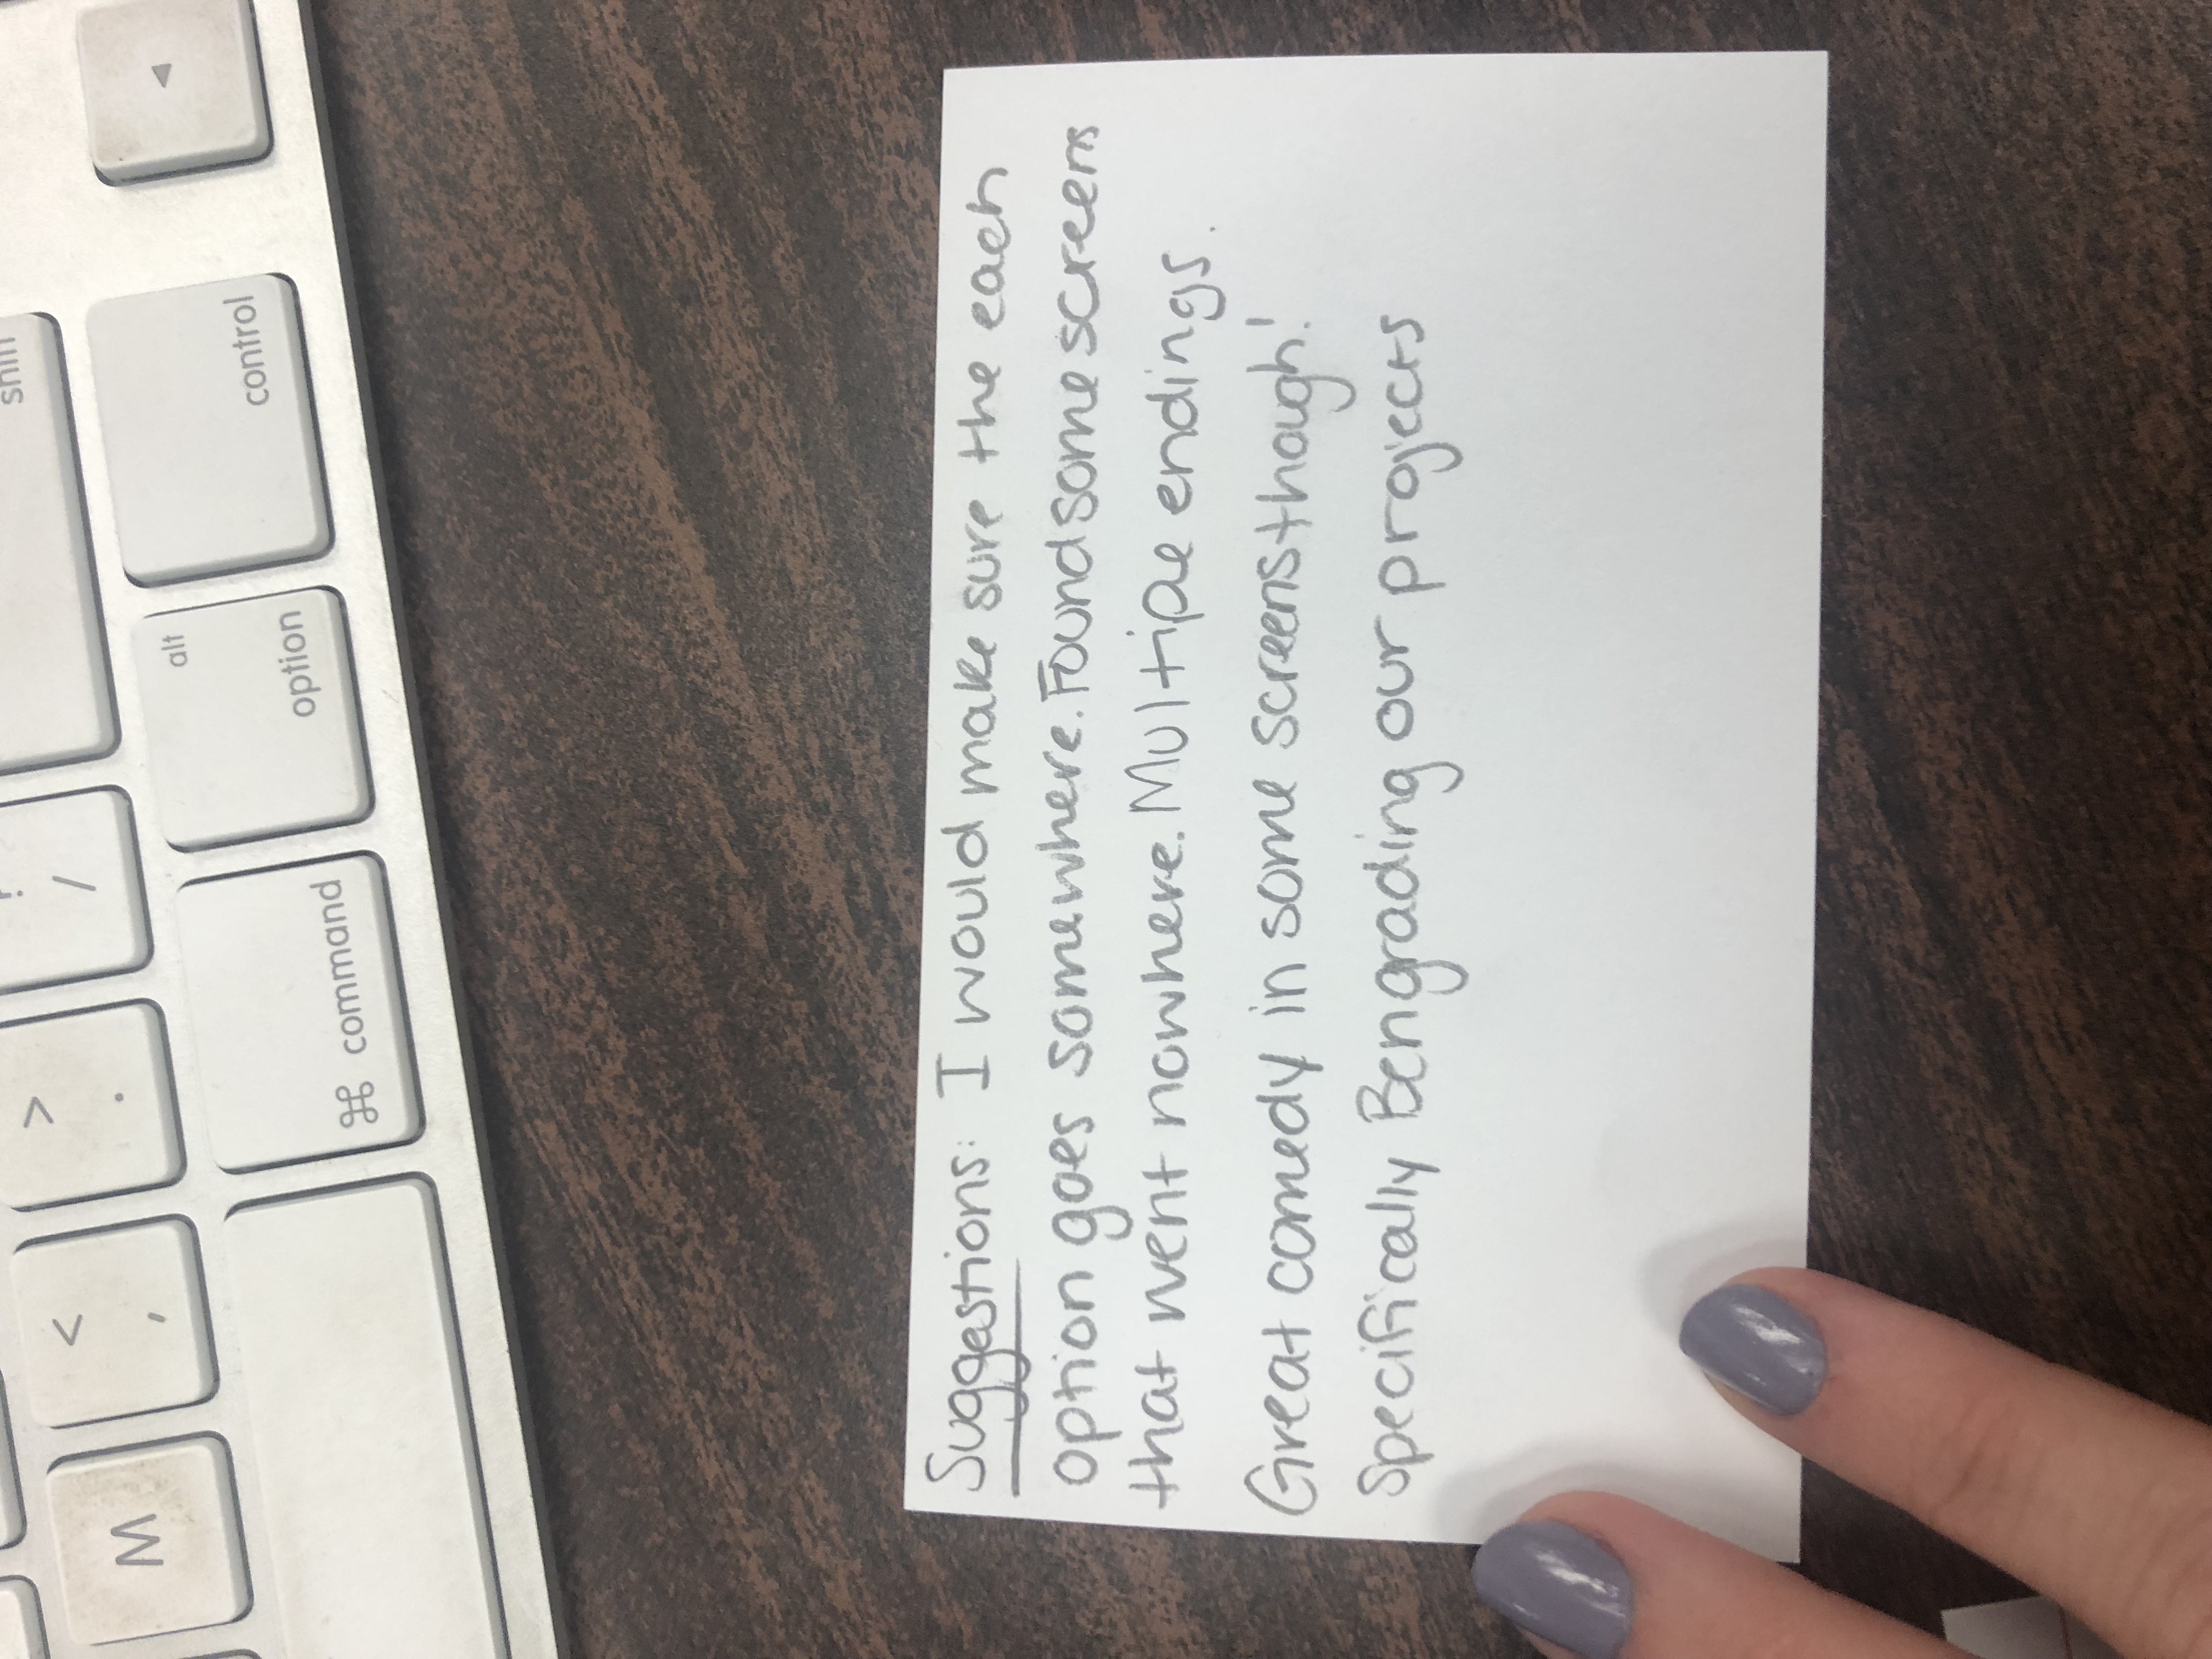 shift
M
<
,
>
.
?
/
alt
option
control
◄
⌘ command
Suggestions: I would make sure the each
option goes somewhere. Found some screens
that went nowhere. Multiple endings.
Great comedy in some screens though!
Specifically Ben grading our projects